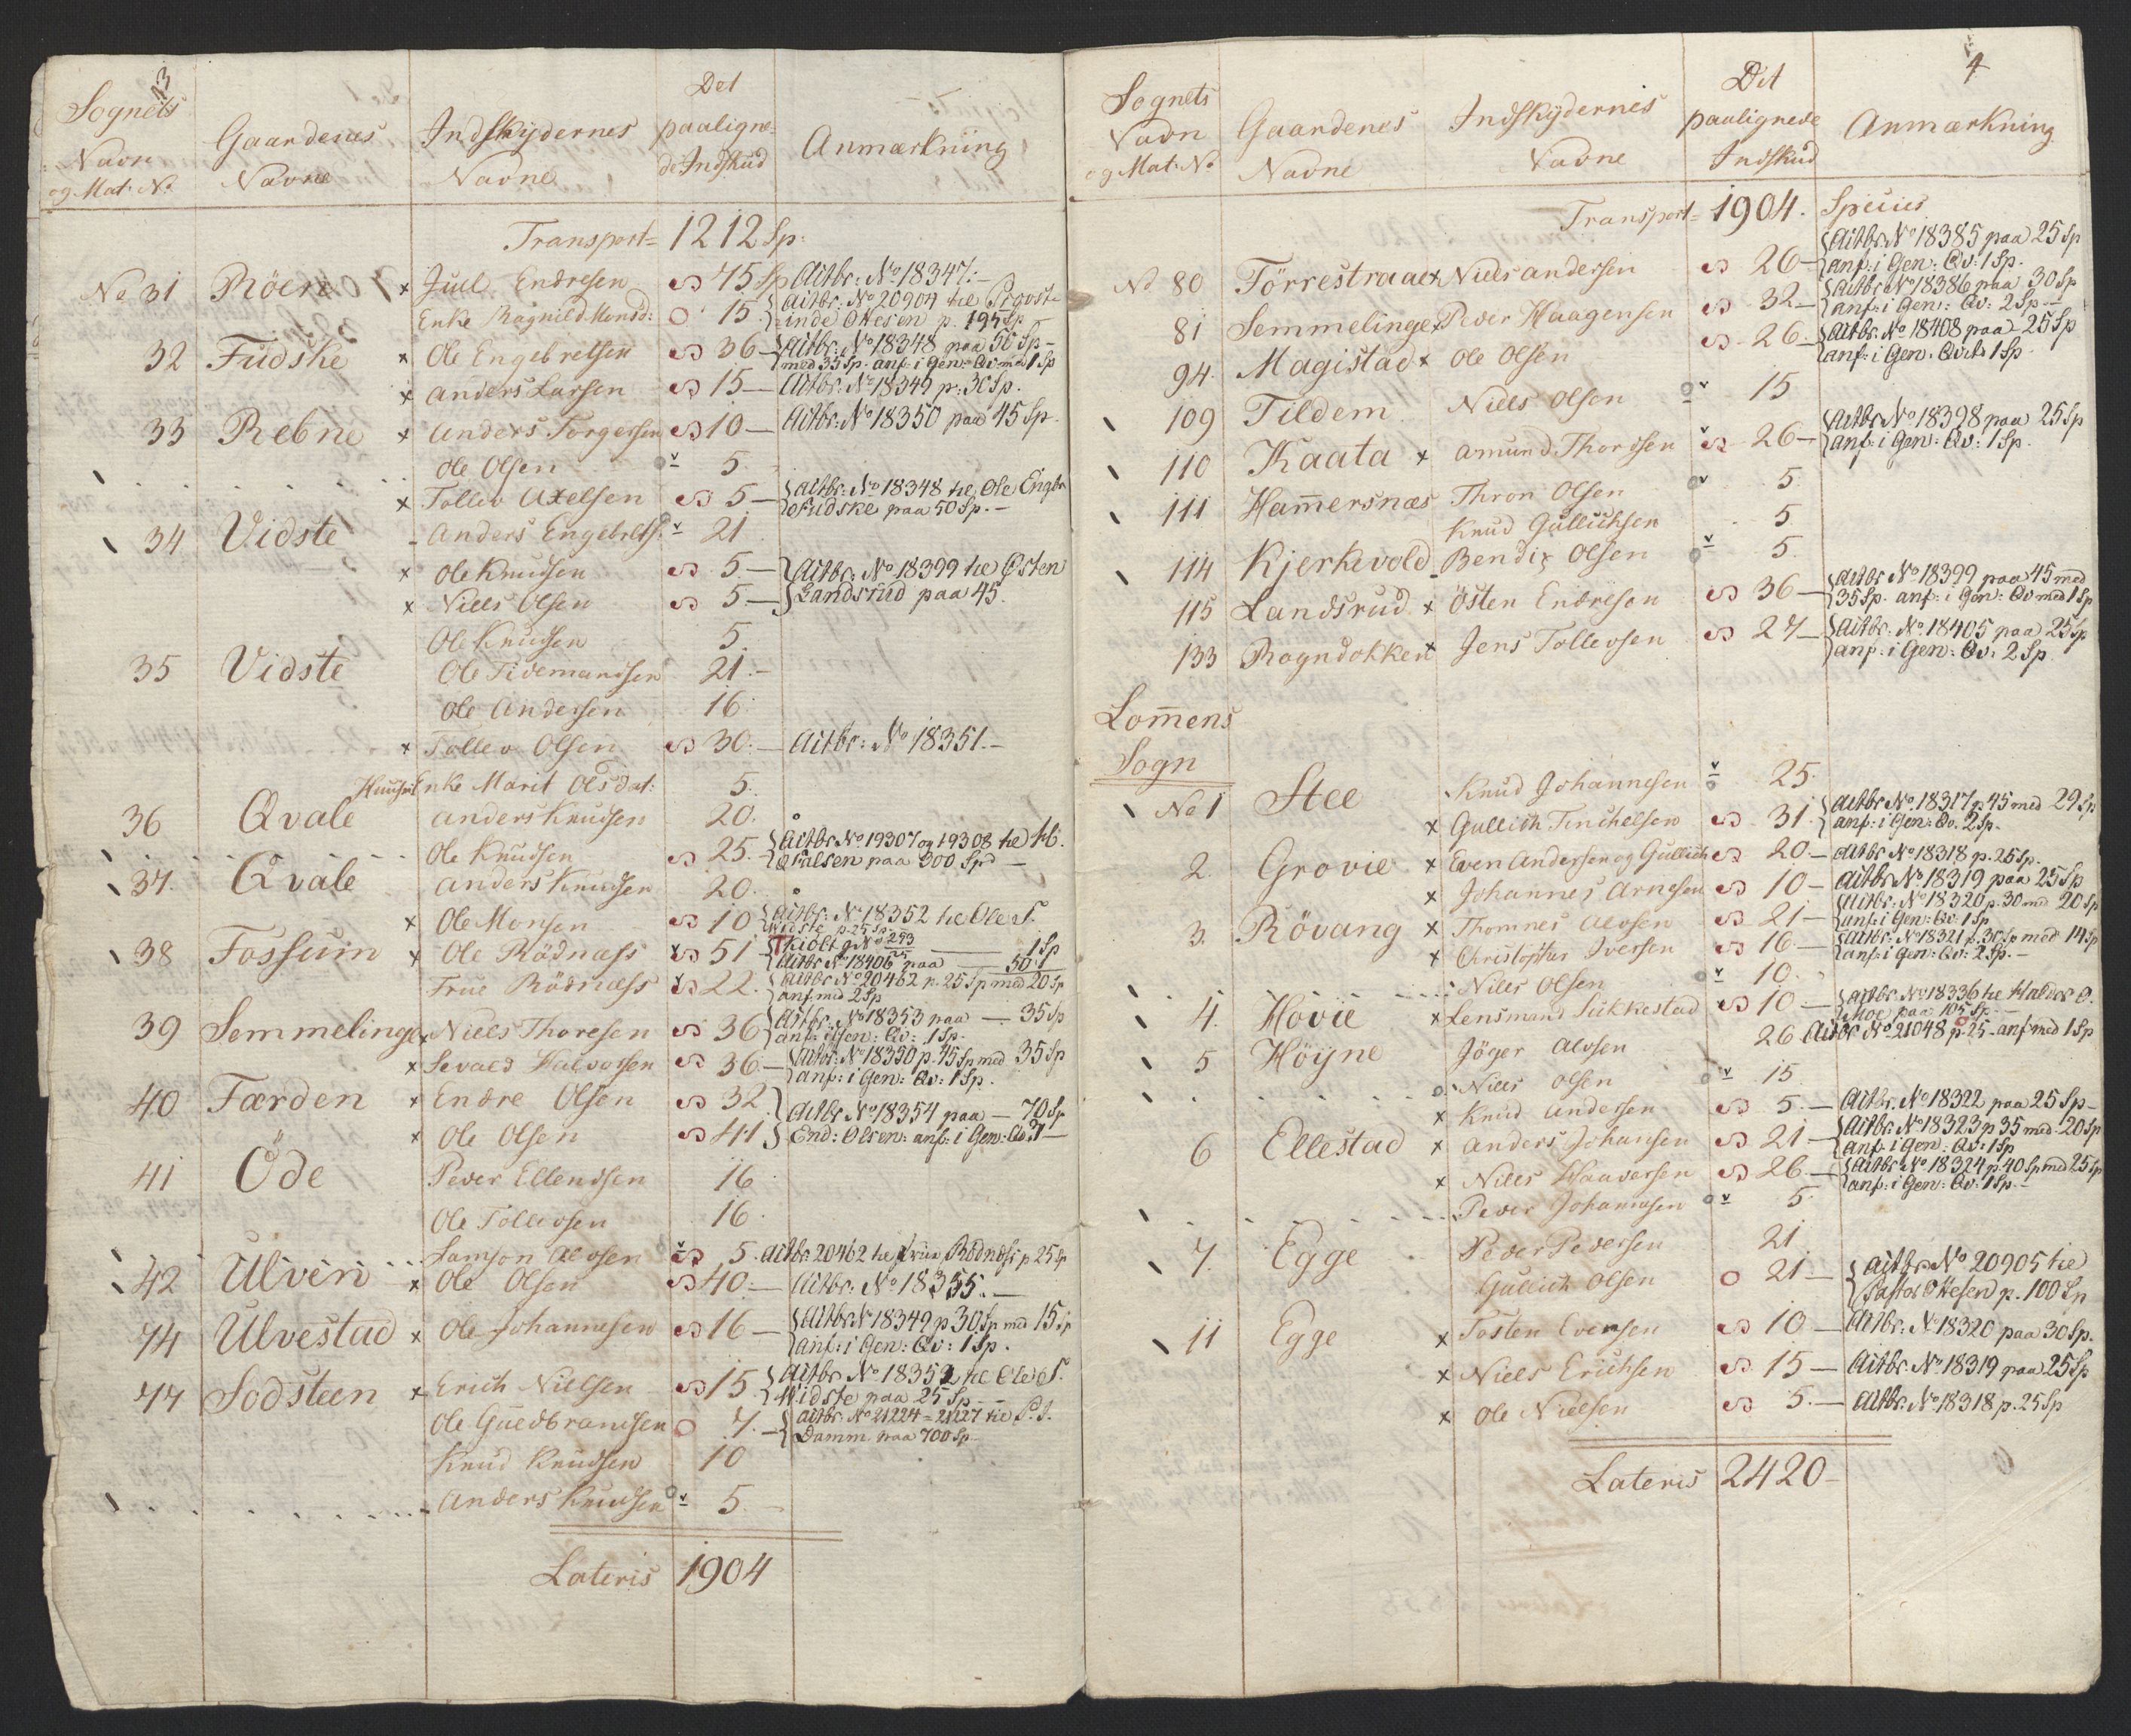 13
Sognets Navn og Mat. No.
Gaardenes Navne
Indskydernes Navne
Det paaligne-de Indskud
Anmærkning
Transport= 1212 Sp:
No 31 Röen x Juul Endresen 45 Sp Aitbr: No 18347.-
Enke Ragnild Monsd: 15. Aitbr. No 20904 til Provst-
inde Ottesen p. 195 Sp
32 Fudske x Ole Engebretsen 36 - Aitbr: No 18348 paa 50 Sp -
med 35 Sp. anf: i Gen: Qv: med 1 Sp
x Anders Larsen 15 - Aitbr. No 18349 p: 30 Sp.
33 Rebne x Anders Torgersen 10 - Aitbr: No 18350 paa 45 Sp.
Ole Olsen 5.
x Tollev Axelsen 5 - Aitbr: No 18348 til Ole Engbr
Fudske paa 50 Sp. -
34 Vidste Anders Engebrets: 21
x Ole Knudsen 5. - Aitbr: No 18399 til Østen
x Niels Olsen 5 - Landsrud paa 45.
Ole Knudsen 5.
35 Vidste Ole Tidemandsen 21.-
Ole Andersen 16.
x Tollev Olsen 30. - Aitbr: No 18351.-
Enke Marit Olsdat: 5.
36 Qvale Anders Knudsen 20.
Ole Knudsen 25. Aitbr No 19307 og 19308 til
Falsen paa 900 Spd -
37. Qvale Anders Knudsen 20.
x Ole Monsen 10 Aitbr: No 18352 til Ole T.
Widste p. 25 Sp.
38 Fossum x Ole Rödnæss 51 Kiöbt g No 293 1 Sp
Aitbr No 18406 paa 50 "
Frue Rödnæss 22. Aitbr No 20462 p. 25 Sp med 20 Sp
anf med 2 Sp
39 Semmelinge x Niels Thoresen 36 Aitbr. No 18353 paa - 35 Sp
anf: i Gen: Qv: 1 Sp.
x Sevald Halvorsen 36 - Aitbr: No 18350 p. 45 Sp med 35 Sp
anf: i Gen: Qv: 1 Sp.
40 Færden x Endre Olsen 32. Aitbr No 18354 paa - 70 Sp
x Ole Olsen 41 End: Olsen: anf: i Gen: Qv: 3 -
41 Öde Peder Ellendsen 16
Ole Tollevsen 16.
Samson Alvsen 5. Aitbr 20462 til Frue Rödnæss p 25 Sp
42 Ulven x Ole Olsen 40. - Aitbr: No 18355. -
74 Ulvestad x Ole Johannesen 16 - Aitbr No 18349 p 30 Sp med 15 Sp
anf: i Gen: Qv: 1 Sp.
77 Sodsteen x Erich Nielsen 15 Aitbr No 18352 til Ole T.
Widste paa 25 Sp - -
Ole Guedbrandsen 7. - Aitbr No 21224 = 21227 til P. J.
Damm paa 700 Sp
Knud Knudsen 10
Anders Knudsen 5. -
Lateris 1904
4
Sognets Navn og Mat. No
Gaardenes Navne
Indskydernes Navne
Det paalignede Indskud
Anmærkning
Transport= 1904. Specier
No 80 Törrestraae x Niels Andersen 26 - Aitbr. No 18385 paa 25 Sp
anf: i Gen: Qv: 1 Sp.
81 Semmelinge x Peder Haagensen 32 - Aitbr No 18386 paa 30 Sp
anf: i Gen: Qv: 2 Sp. -
94. Magistad x Ole Olsen 26. - Aitbr. No 18408 paa 25 Sp
anf: i Gen: Qvit: 1 Sp.
109 Tildem Niels Olsen 15
110 Kaata x Amund Thordsen 26 - Aitbr No 18398 paa 25 Sp
anf: i Gen: Qv: 1 Sp.
111 Ham̅ersnæs Thron Olsen 5.
Knud Gullichsen 5.
114 Kjerkevold Bendix Olsen 5.
115 Landsrud x Östen Endreson 36 - Aitbr No 18399 paa 45 med
35 Sp. anf: i Gen: Qv med 1 Sp
133 Rogndokken x Jens Tollevsen 27 - Aitbr. No. 18405 paa 25 Sp
anf: i Gen: Qv: 2 Sp
Lom̅ens
Sogn
No 1 Stee Knud Johannesen 25.
x Gullich Finchelsen 31. Aitbr No. 18317 p. 45 med 29 Sp
anf: i Gen: Qv. 2 Sp.
2. Grovie x Even Andersen og Gullich 20. - Aitbr No 18318 p. 25 Sp.
x Johannes Arnesen 10 - Aitbr No 18319 paa 25 Sp
3. Rövang x Thomnes Alvsen 21 - Aitbr: No 18320 p. 30 med 20 Sp
anf: i Gen: Qv: 1 Sp
x Christopher Iversen 16 - Aitbr: No 18321 p. 30 Sp med 14 Sp
anf: i Gen: Qv: 2 Sp. -
Niels Olsen 10.
4. Hövie x Lensmand Sukkestad 10 - Aitbr. No 18336 til Haldor O.
Moe paa 105 Sp. -
5 Höyne Jöger Alvsen 26 Aitbr No 21048 p 25 - anf med 1 Sp
Niels Olsen 15
x Knud Andersen 5. - Aitbr. No 18322 paa 25 Sp -
6 Ellestad x Anders Johansen 21 - Aitbr No 18323 p 35 med 20 Sp
anf: i Gen: Qv: 1 Sp
x Niels Haaversen 26 - Aitbr No 18324 p. 40 Sp med 25 Sp
anf: i Gen: Qv: 1 Sp. -
Peder Johannesen 5.
7. Egge Peder Pedersen 21
Gullich Olsen 21 - Aitbr No 20905 til
Pastor Ottesen p. 100 Sp
11 Egge x Tosten Evensen 10 - Aitbr: No 18320 paa 30 Sp.
x Niels Erichsen 15 - Aitbr. No 18319 paa 25 Sp
x Ole Nielsen 5. - Aitbr. No 18318 p. 25 Sp
Lateris 2420 -